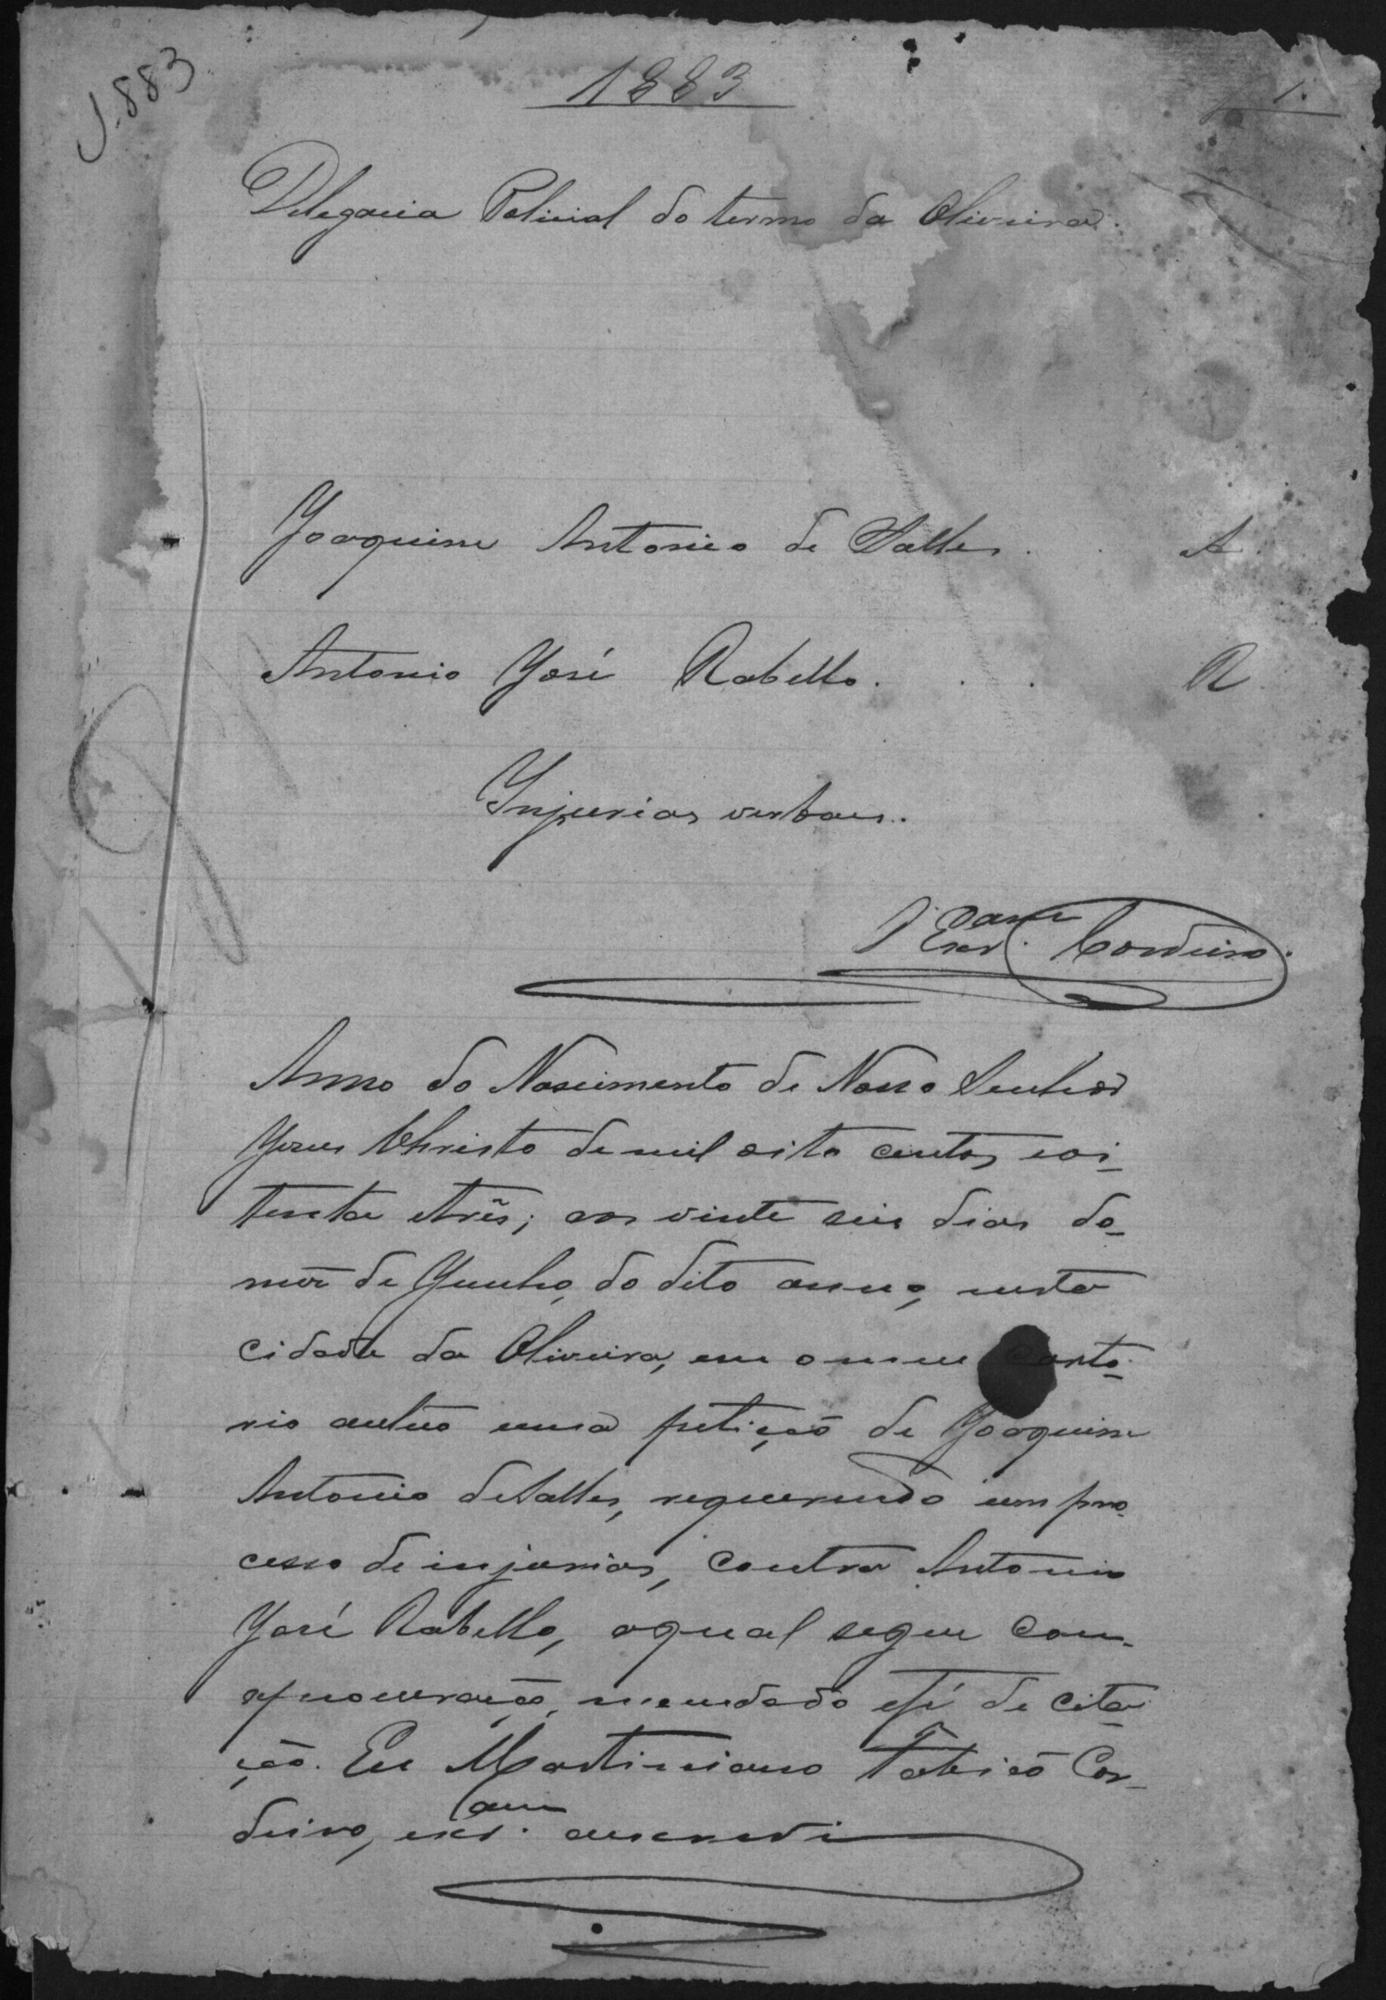 1883
1883
1.
Delegacia Policial do termo da Oliveira.
Joaquim Antonio de Salles . . A.
Antonio José Rabello . . . R.
Injurias verbaes.
Escr.am Cordeiro.
Anno do Nascimento de Nosso Senhor
Jesus Christo de mil oito centos e oi-
tenta e tres; aos vinte seis dias do
mez de Junho, do dito anno, nesta
cidade da Oliveira, em o meu carto-
rio autuo uma petição de Joaquim
Antonio de Salles, requerendo um pro-
cesso de injurias, contra Antonio
José Rabello, a qual segue com
a procuração, mandado e fé de cita-
ção. Eu Martiniano Cor-
deiro, escr.am que escrevi